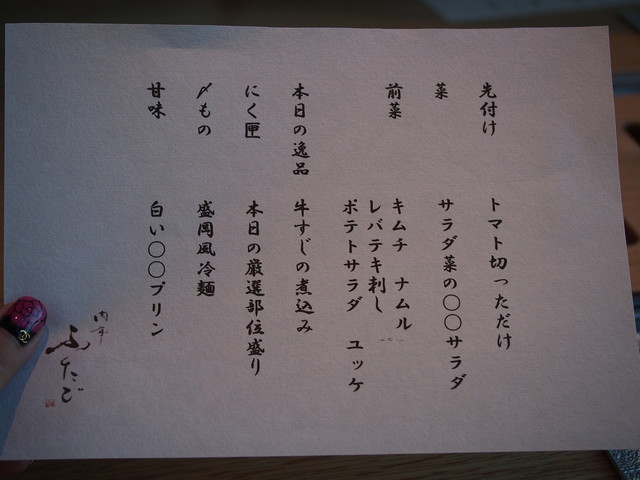 先付け トマト切っただけ
菜 サラダ菜の〇〇サラダ
前菜 キムチ ナムル
レバテキ刺し
ポテトサラダ ユッケ
本日の逸品 牛すじの煮込み
にく匣 本日の厳選部位盛り
〆もの 盛岡風冷麺
甘味 白い〇〇プリン
ふたご